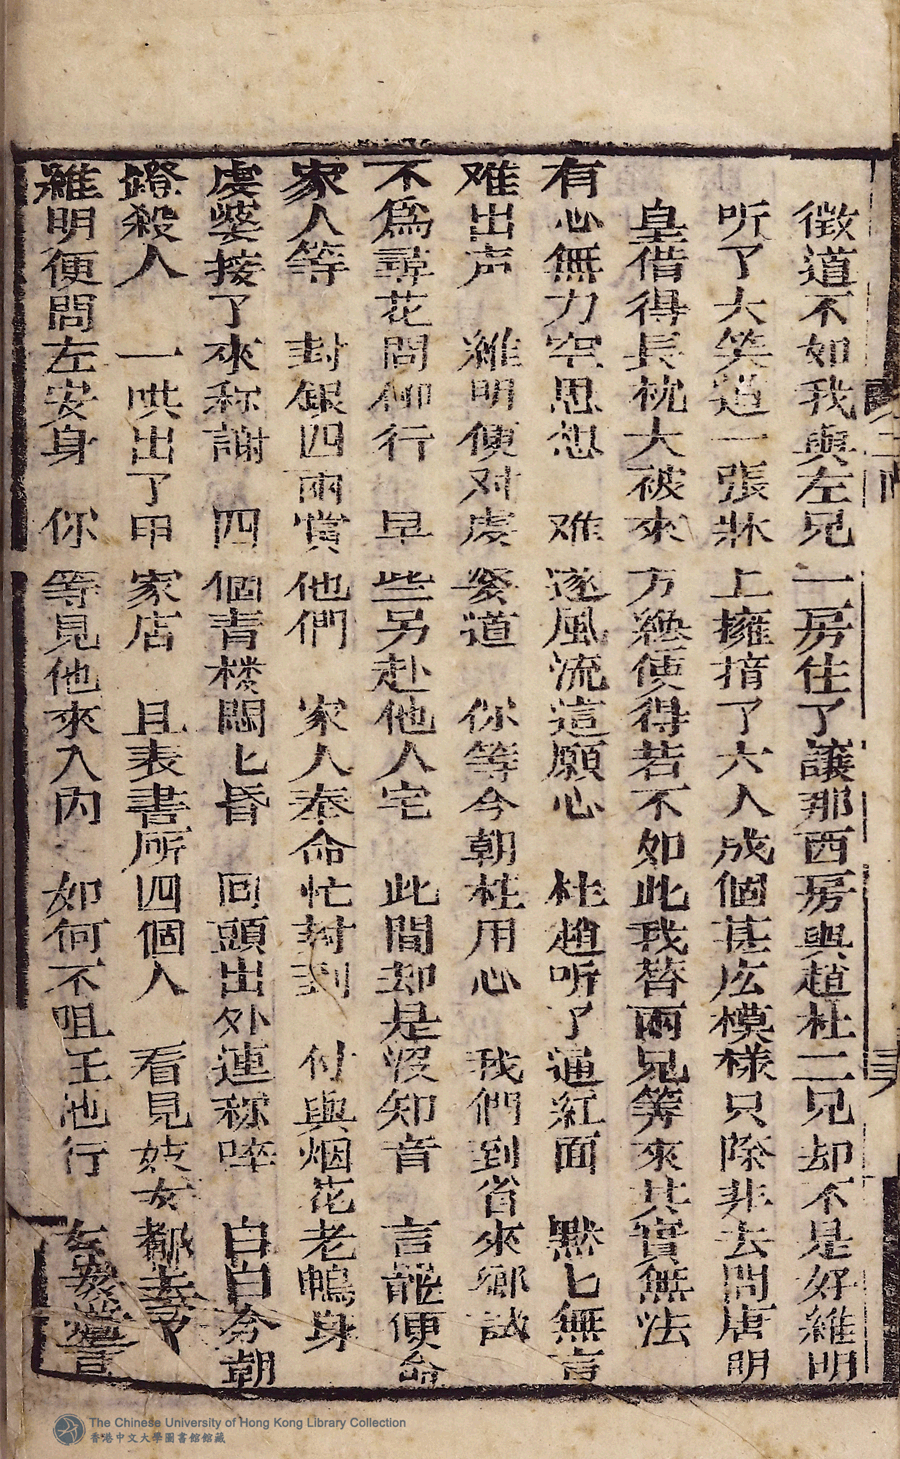 徵道不如我與左兄一房住了讓那西房與趙杜二兄却不是好維明
听了大笑道一張牀上擁揞了六人成個甚庅模樣只除非去問唐明
皇借得長枕大被來方纔便得若不如此我替兩兄筭來其實無法
有心無力空思想 难遂風流這願心 杜趙听了通紅面 黙匕無言
难出声 維明便对虔婆道 你等今朝枉用心 我們到省來鄉試
不爲尋花問柳行 早些另赴他人宅 此間却是没知音 言罷便命
家人等 封銀四兩賞他們 家人奉命忙封到 付與烟花老鴇身
虔婆接了來称謝 四個青楼悶匕昏 回頭出外連称啐 白白今朝
鐙殺人 一哄出了甲家店 且表書所四個人 看見妓女都去了
維明便問左安身 你等見他來入內 如何不咀王池行
The Chinese University of Hong Kong Library Collection
香港中文大學圖書館館藏